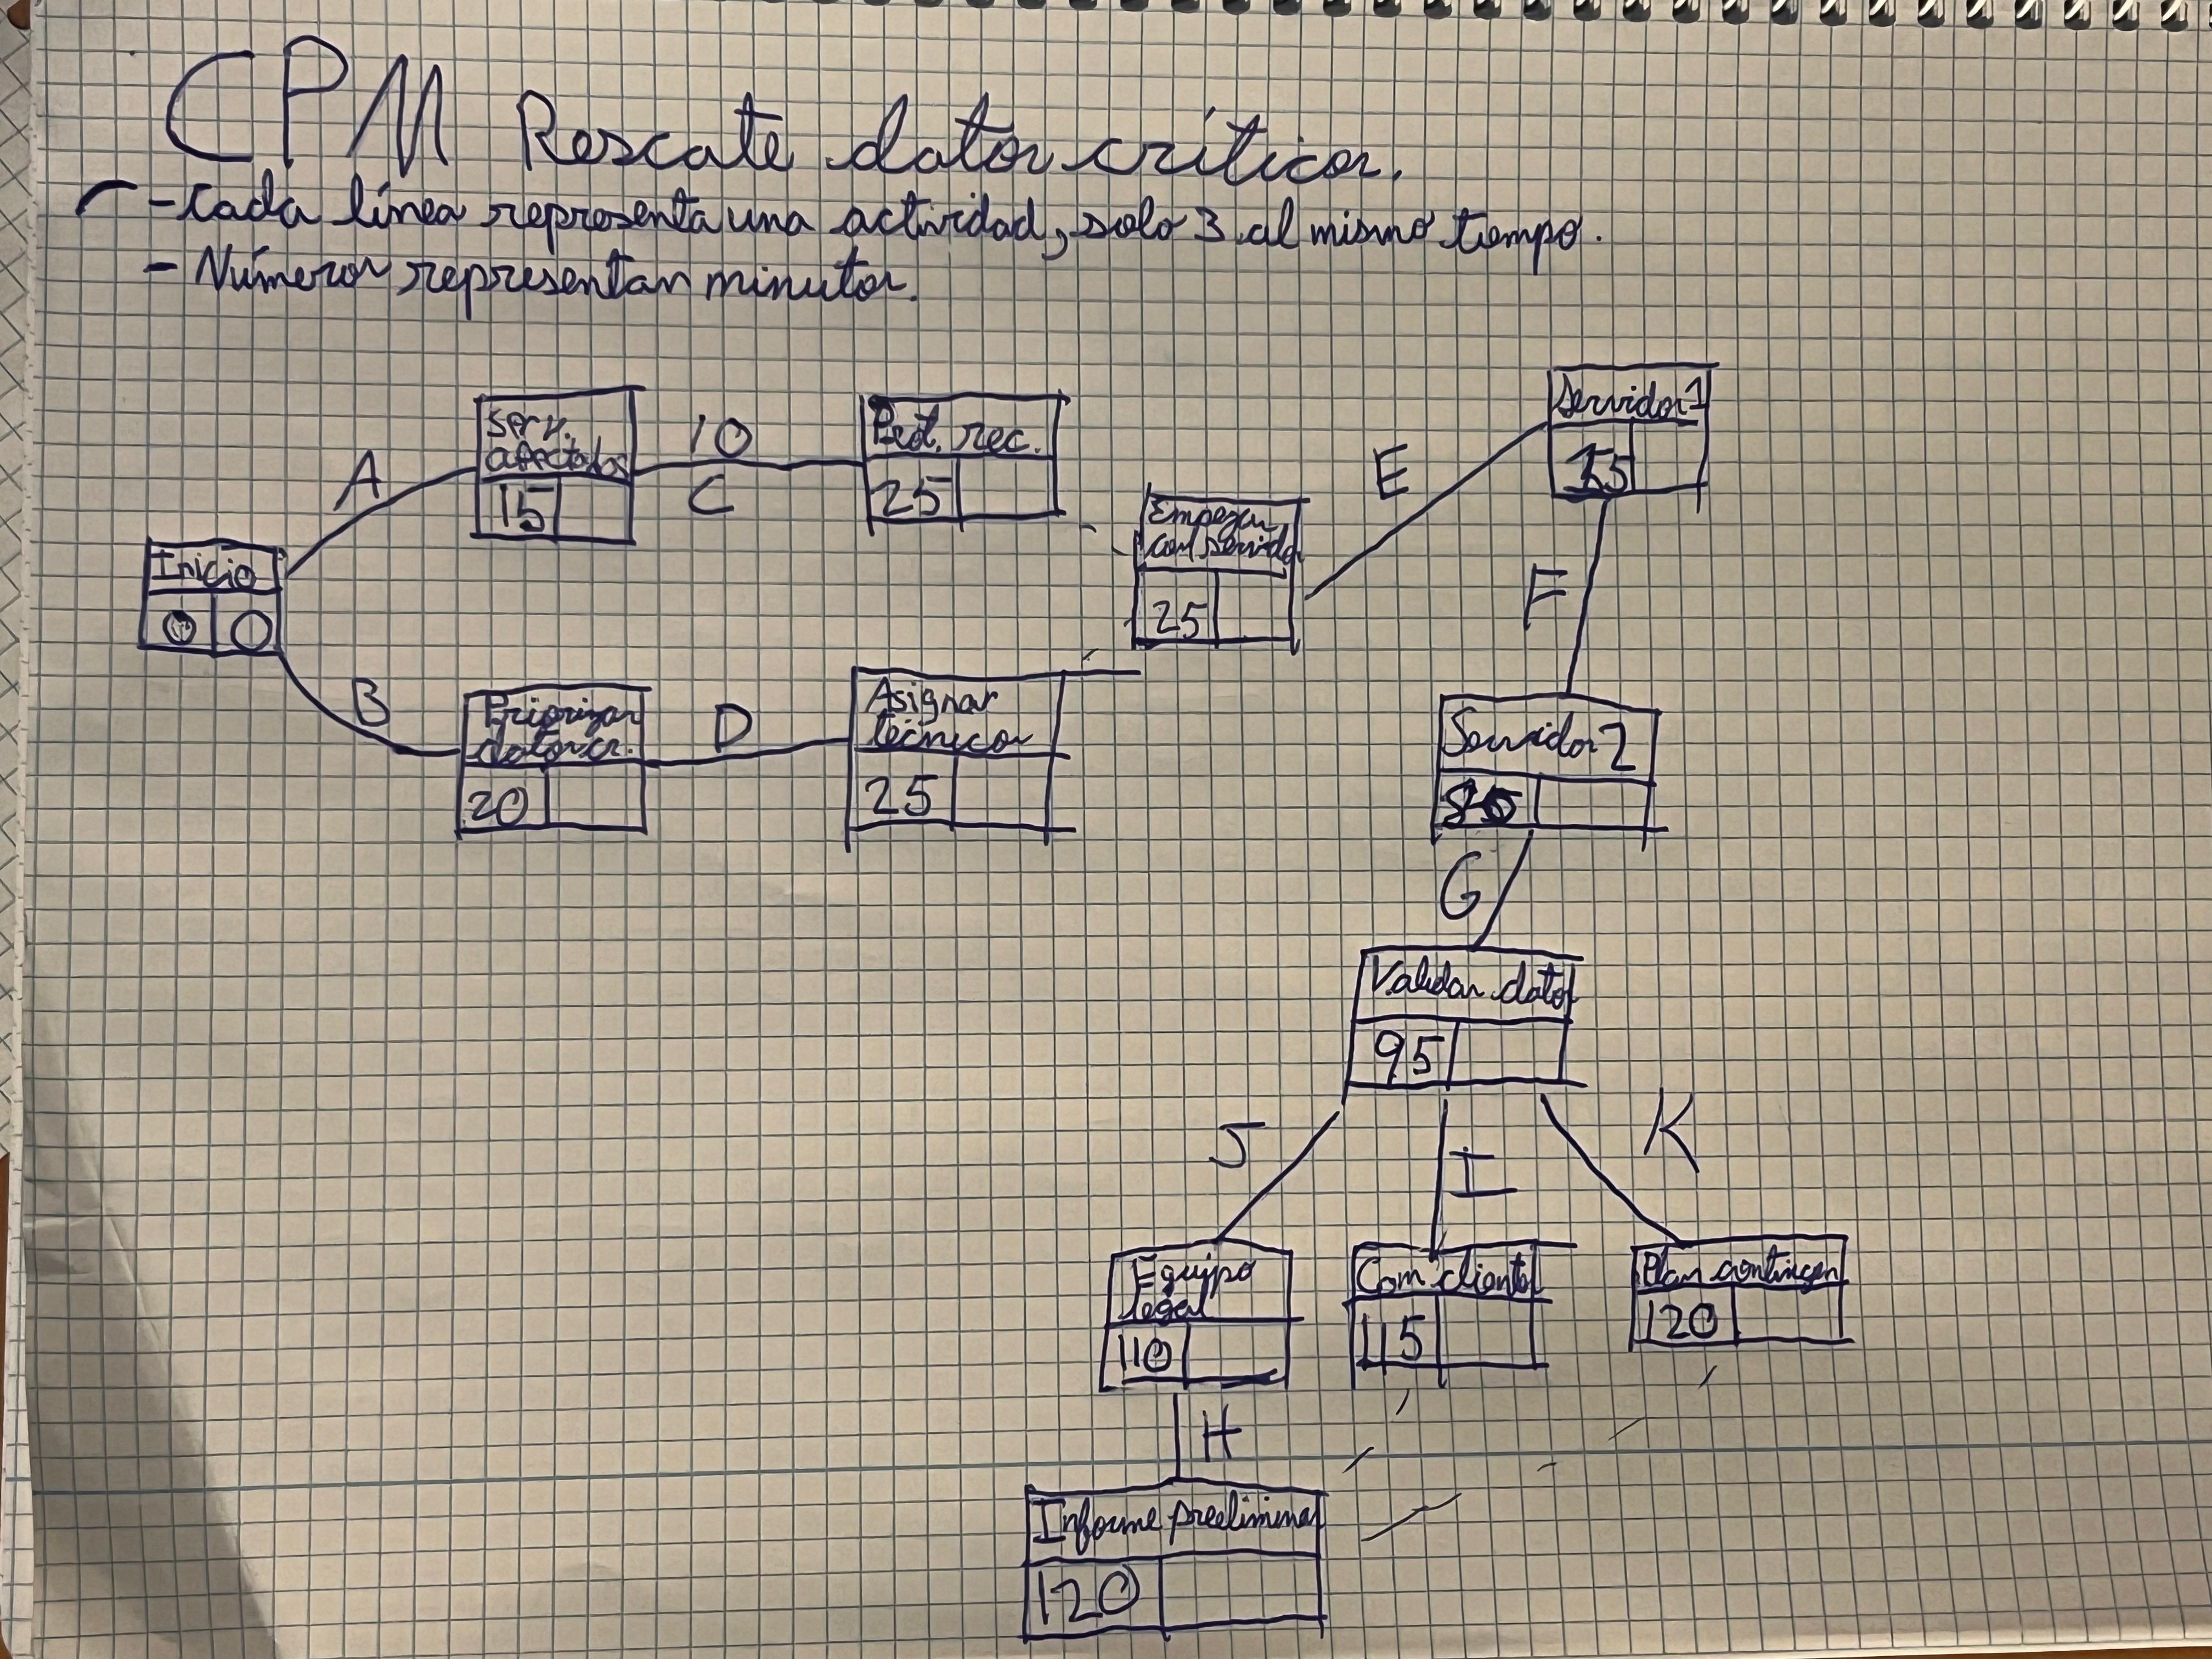 CPM Rescate datos críticos.
- Cada línea representa una actividad, solo 3 al mismo tiempo.
- Números representan minutos.
Inicio
0 0
A
Serv.
afectados
15
10
C
Red. rec.
25
B
Priorizar
datos cr.
20
D
Asignar
técnicos
25
Empezar
con servido
25
E
Servidor 1
F
Servidor 2
G
Validar datos
95
J
I
K
Equipo
legal
110
Com. cliente
115
Plan contingen
120
H
Informe preeliminar
120